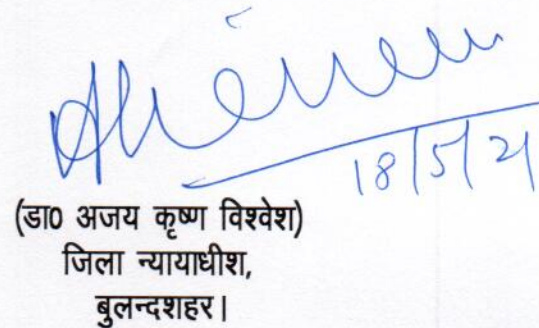 18/5/21
(डा0 अजय कृष्ण विश्वेश)
जिला न्यायाधीश,
बुलन्दशहर।